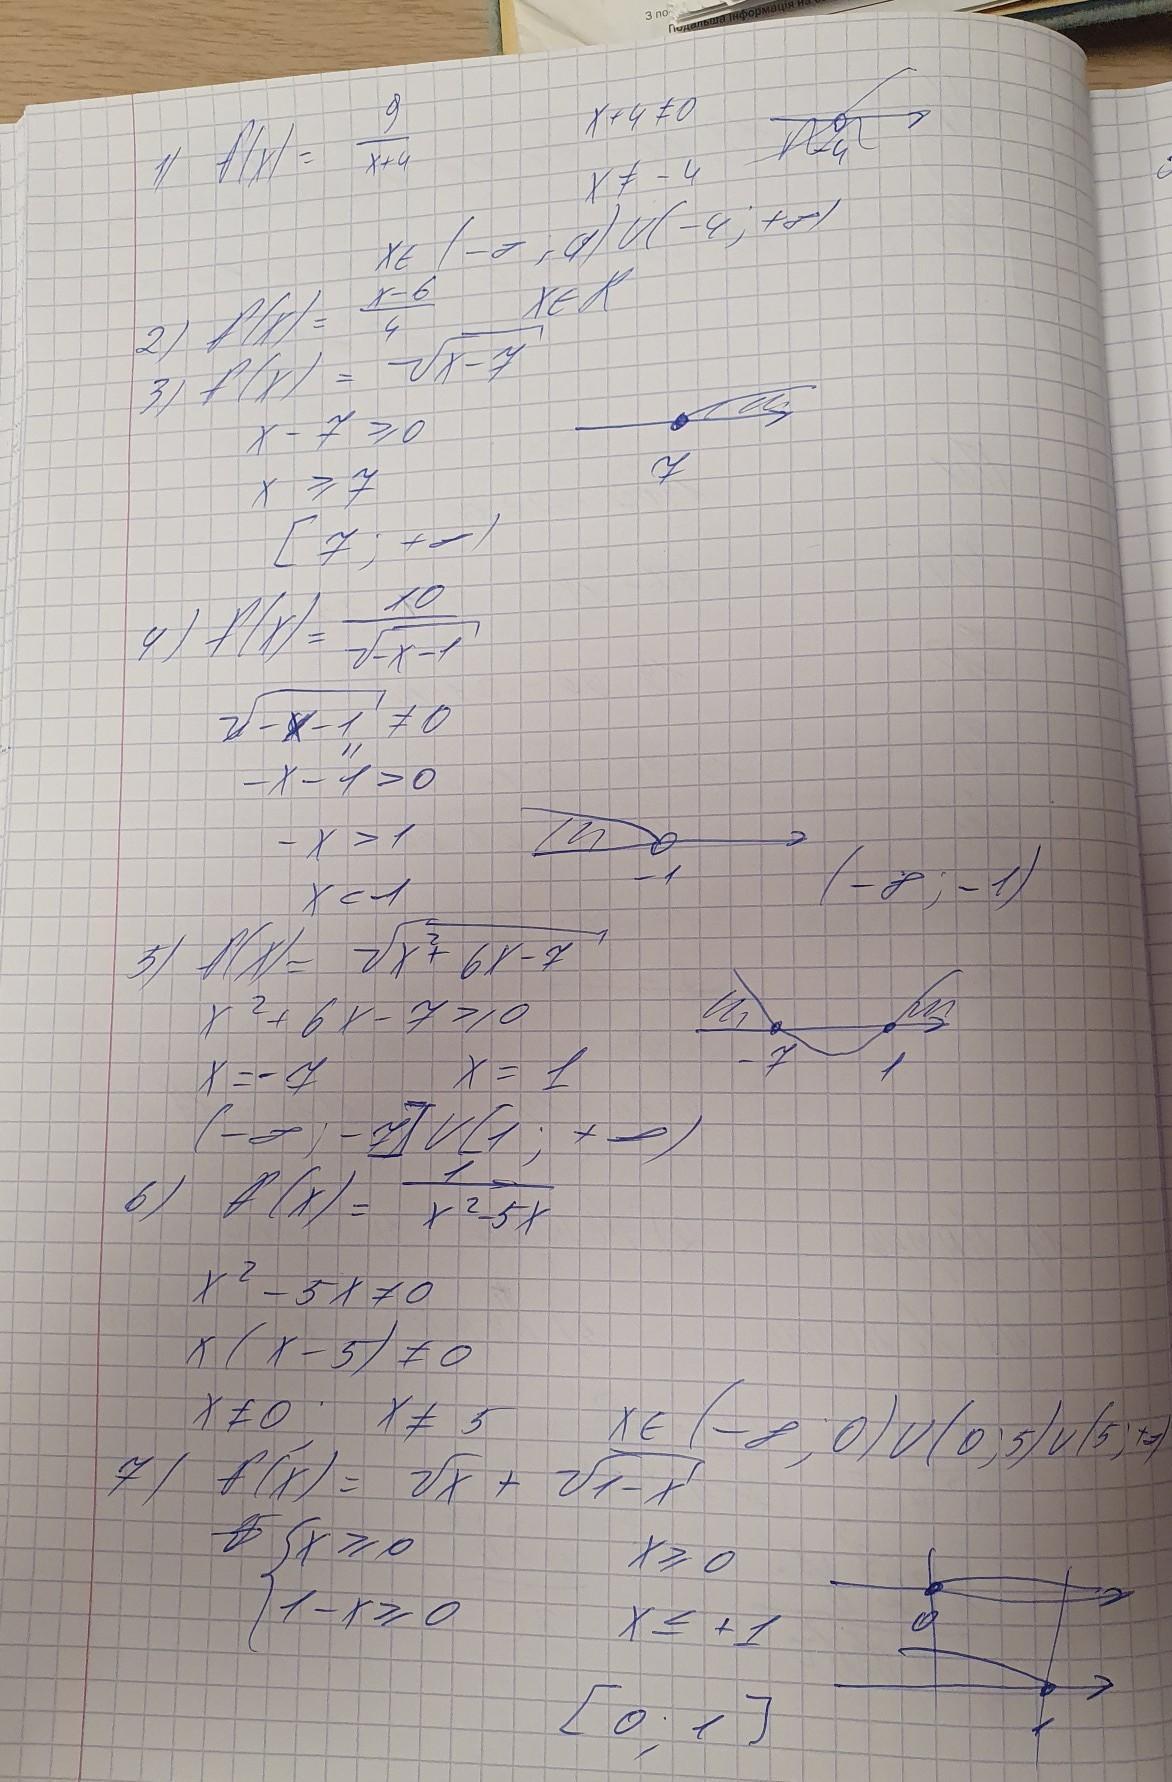 З по
Подальша інформація на
1) f(x) = 9/(x+4) x+4≠0 -4
x≠-4
x∈(-∞; 4)U(-4; +∞)
2) f(x) = (x-6)/4 x∈R
3) f(x) = √(x-7)
x-7≥0 7
x≥7
[7; +∞)
4) f(x) = 10/√(-x-1)
√(-x-1) ≠0
-x-1>0
-x>1 -1 (-∞; -1)
x<-1
5) f(x) = √(x²+6x-7)
x²+6x-7≥0 -7 1
x=-7 x=1
(-∞; -7]U[1; +∞)
6) f(x) = 1/(x²-5x)
x²-5x≠0
x(x-5)≠0
x≠0; x≠5 x∈(-∞; 0)U(0; 5)U(5; +∞)
7) f(x) = √x + √(1-x)
{x≥0 x≥0 0
{1-x≥0 x≤+1 1
[0; 1]